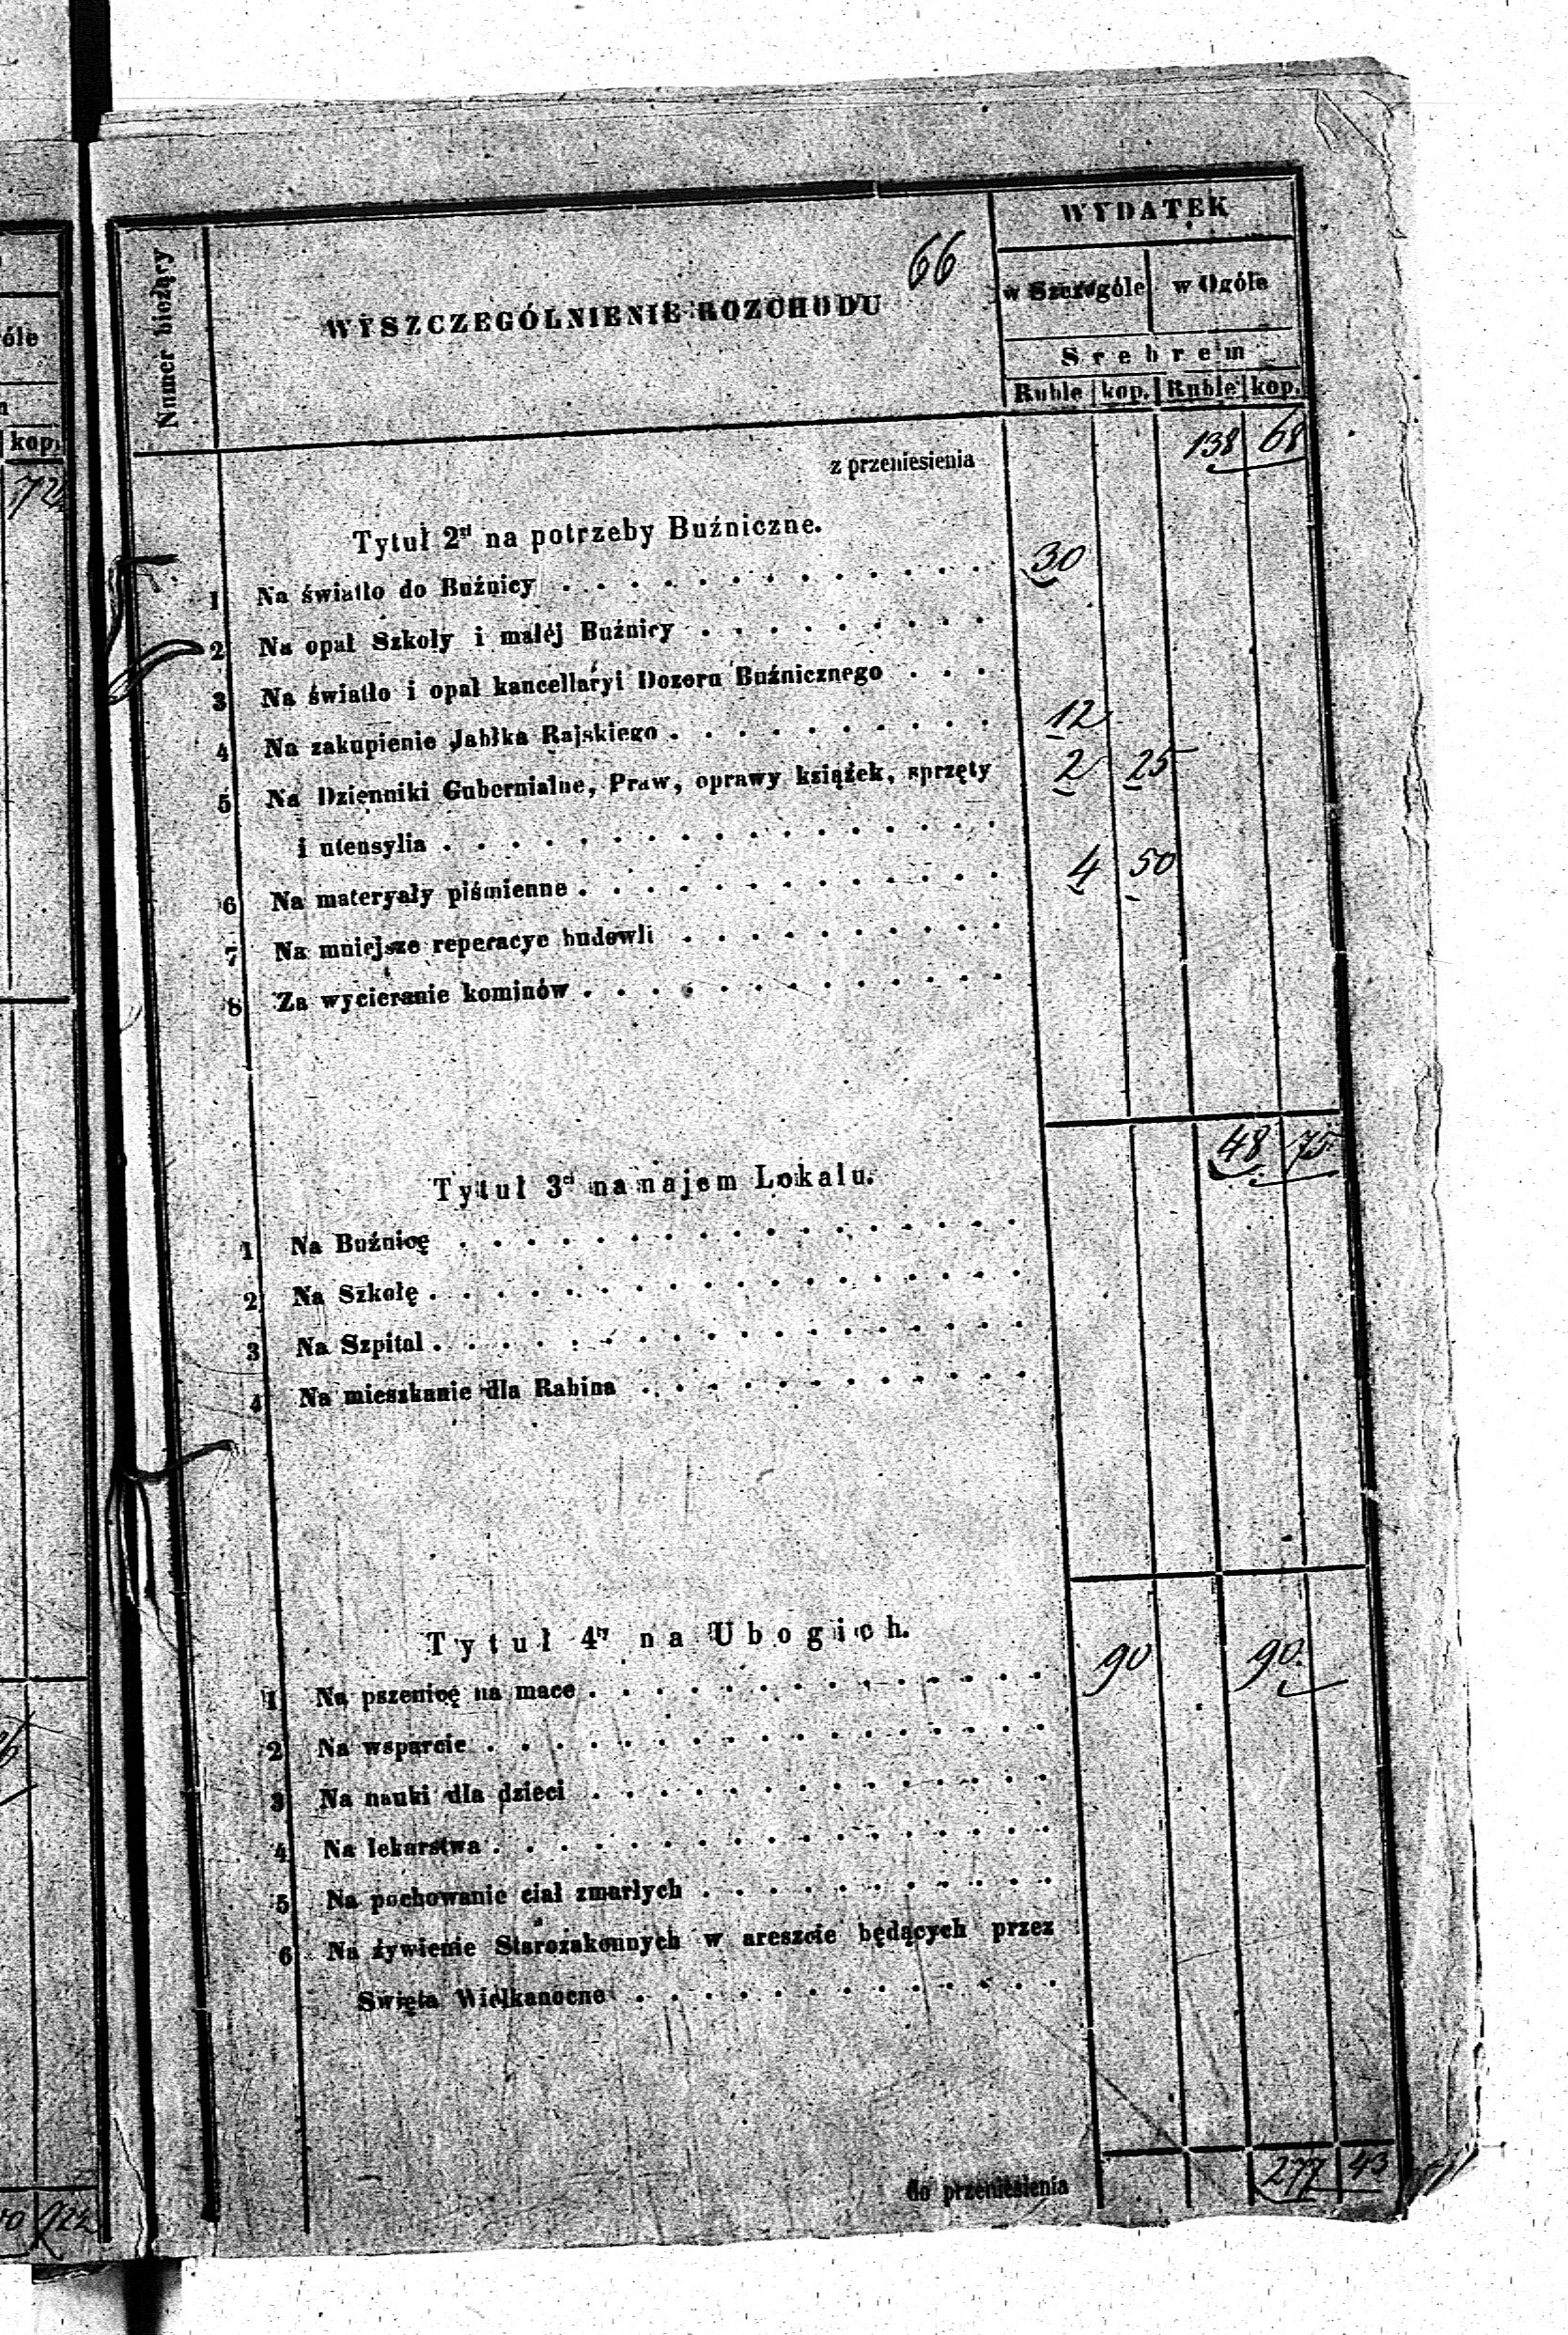 óle
kop.
72
Numer bieżący
WYSZCZEGÓLNIENIE ROZCHODU
66
WYDATEK
w Szczególe w Ogóle
Srebrem
Ruble kop. Ruble kop.
z przeniesienia 138 68
Tytuł 2gi na potrzeby Buźniczne.
1 Na światło do Buźnicy 30
2 Na opał Szkoły i małéj Buźnicy
3 Na światło i opał kancellaryi Dozoru Buźnicznego
4 Na zakupienie Jabłka Rajskiego 12
5 Na Dzienniki Gubernialne, Praw, oprawy książek, sprzęty 2 25
i utensylia
6 Na materyały piśmienne 4 50
7 Na mniejsze reperacye budowli
8 Za wycieranie kominów
48 75
Tytuł 3ci na najem Lokalu.
1 Na Buźnicę
2 Na Szkołę
3 Na Szpital
4 Na mieszkanie dla Rabina
Tytuł 4ty na Ubogich.
1 Na pszenicę na mace 90 90
2 Na wsparcie
3 Na nauki dla dzieci
4 Na lekarstwa
5 Na pochowanie ciał zmarłych
6 Na żywienie Starozakonnych w areszcie będących przez
Święta Wielkanocne
do przeniesienia 277 43